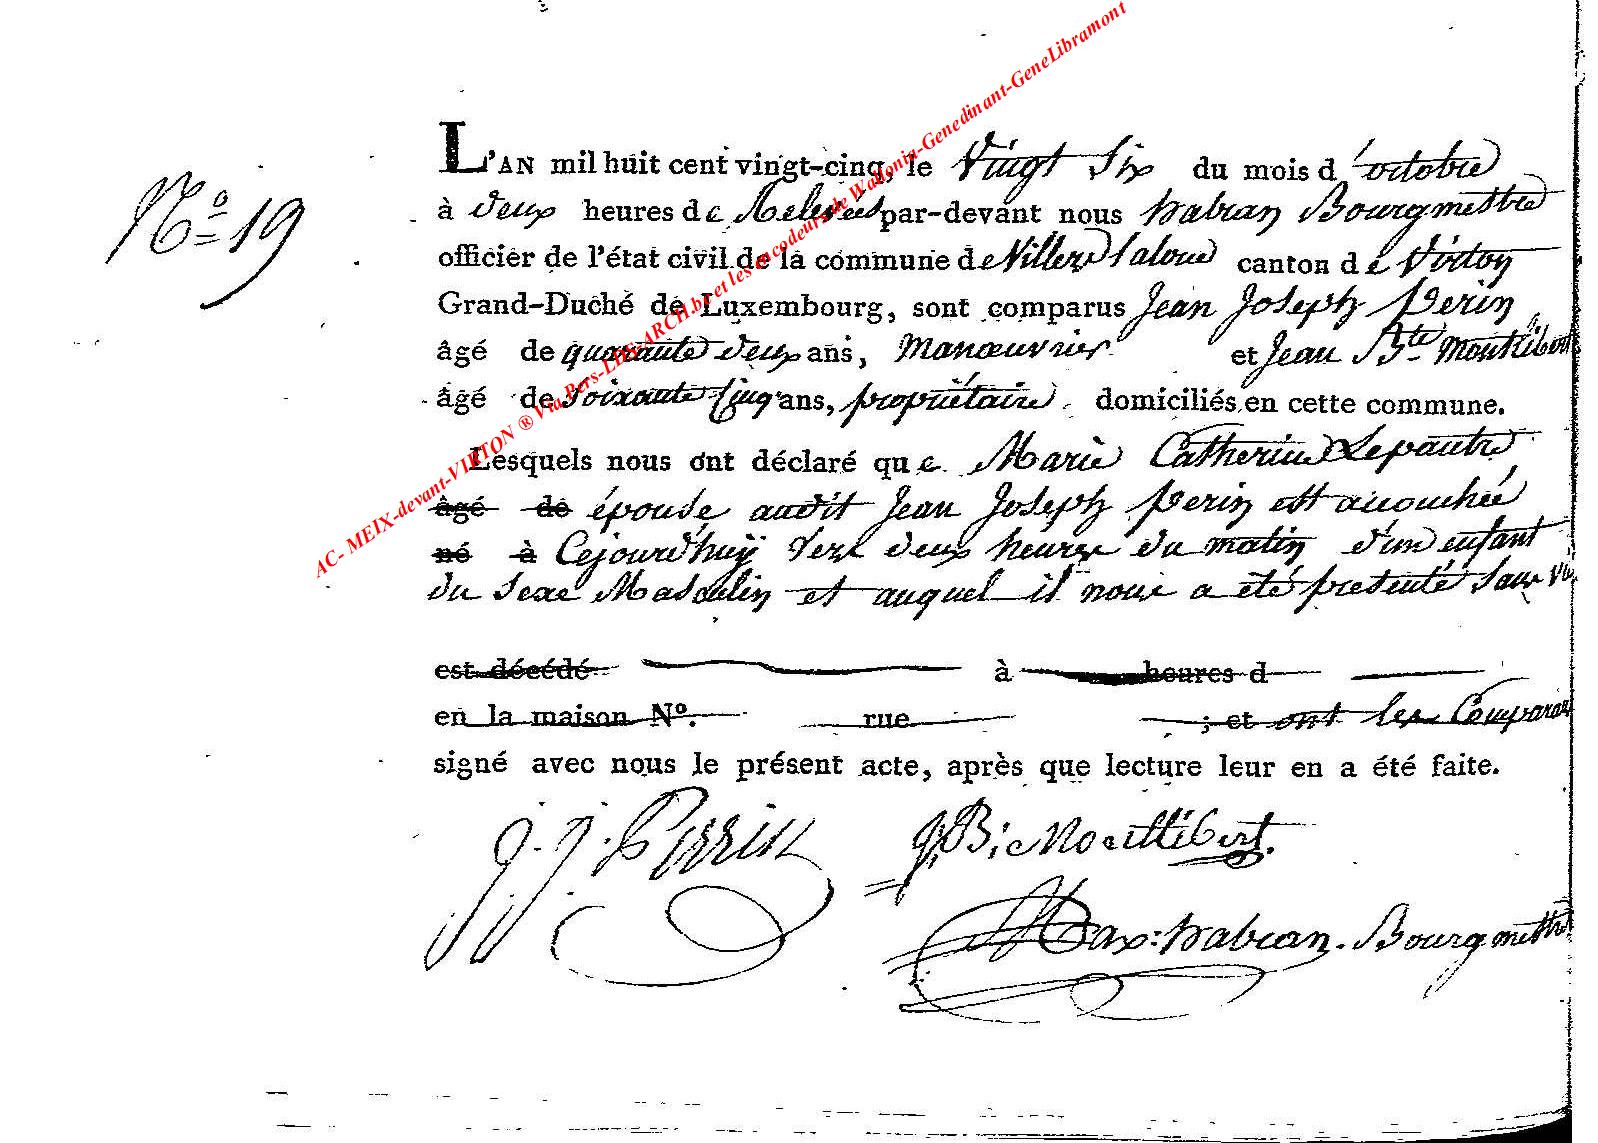 N.º 19
L'AN mil huit cent vingt-cinq, le Vingt Six du mois d'octobre
à deux heures de Relevées par-devant nous habran Bourgmettre
officier de l'état civil de la commune de Villers Laloue canton de Virton
Grand-Duché de Luxembourg, sont comparus Jean Joseph Perin
âgé de quarante deux ans, Manœuvrier et Jean Bte
âgé de Soixante Cinq ans, propriétaire domiciliés en cette commune.
Lesquels nous ont déclaré que Marie Catherine Lepautre
âgé de épouse audit Jean Joseph Perin est acouchée
né à Cejourd'huÿ Vers deux heures du matin d'un enfant
du Sexe Masculin et auquel il nous a été présenté Sans Vie
est décédé à heures d
en la maison Nº. rue ; et ont les Comparant
signé avec nous le présent acte, après que lecture leur en a été faite.
J. J. Perrin J: B: Montlibert.
Max: habran. Bourgmettre
AC- MEIX-devant-VIRTON ® Via Pers-LUX-ARCH.be et les encodeurs de Wallonia-Genedinant-GeneLibramont